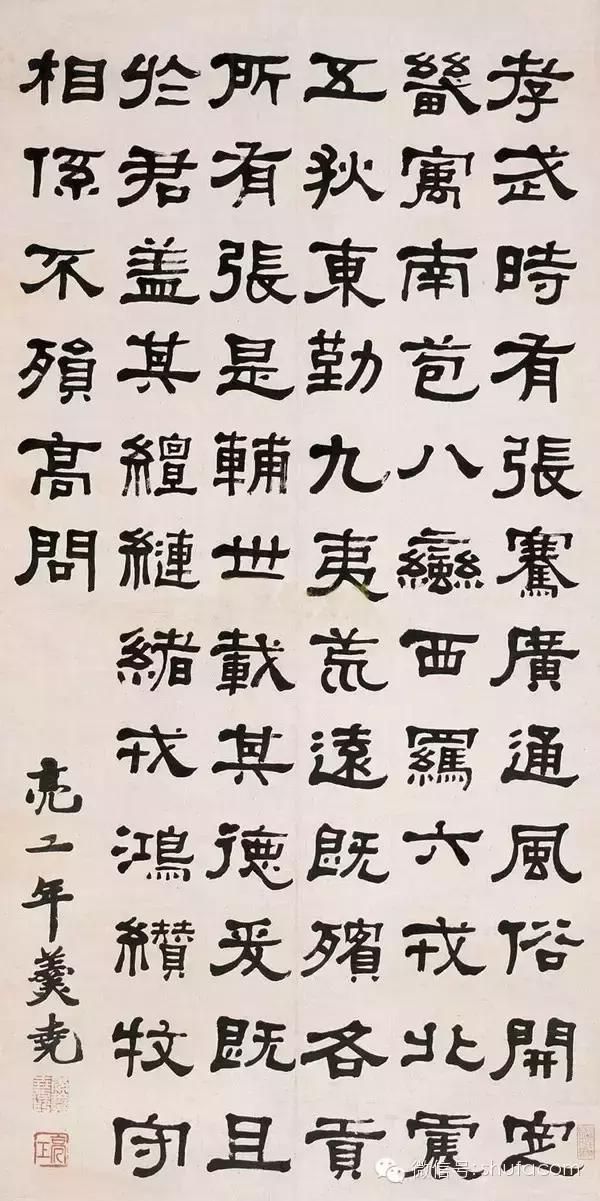 孝武時有張騫廣通風俗開定
畿寓南苞八蠻西羈六戎北震
五狄東勤九夷荒遠既殯各貢
所有張是輔世載其德爰既且
於君盖其繵縺緒戎鴻纘牧守
相係不殞高問
亮工年羹尭
亮工
微信号: